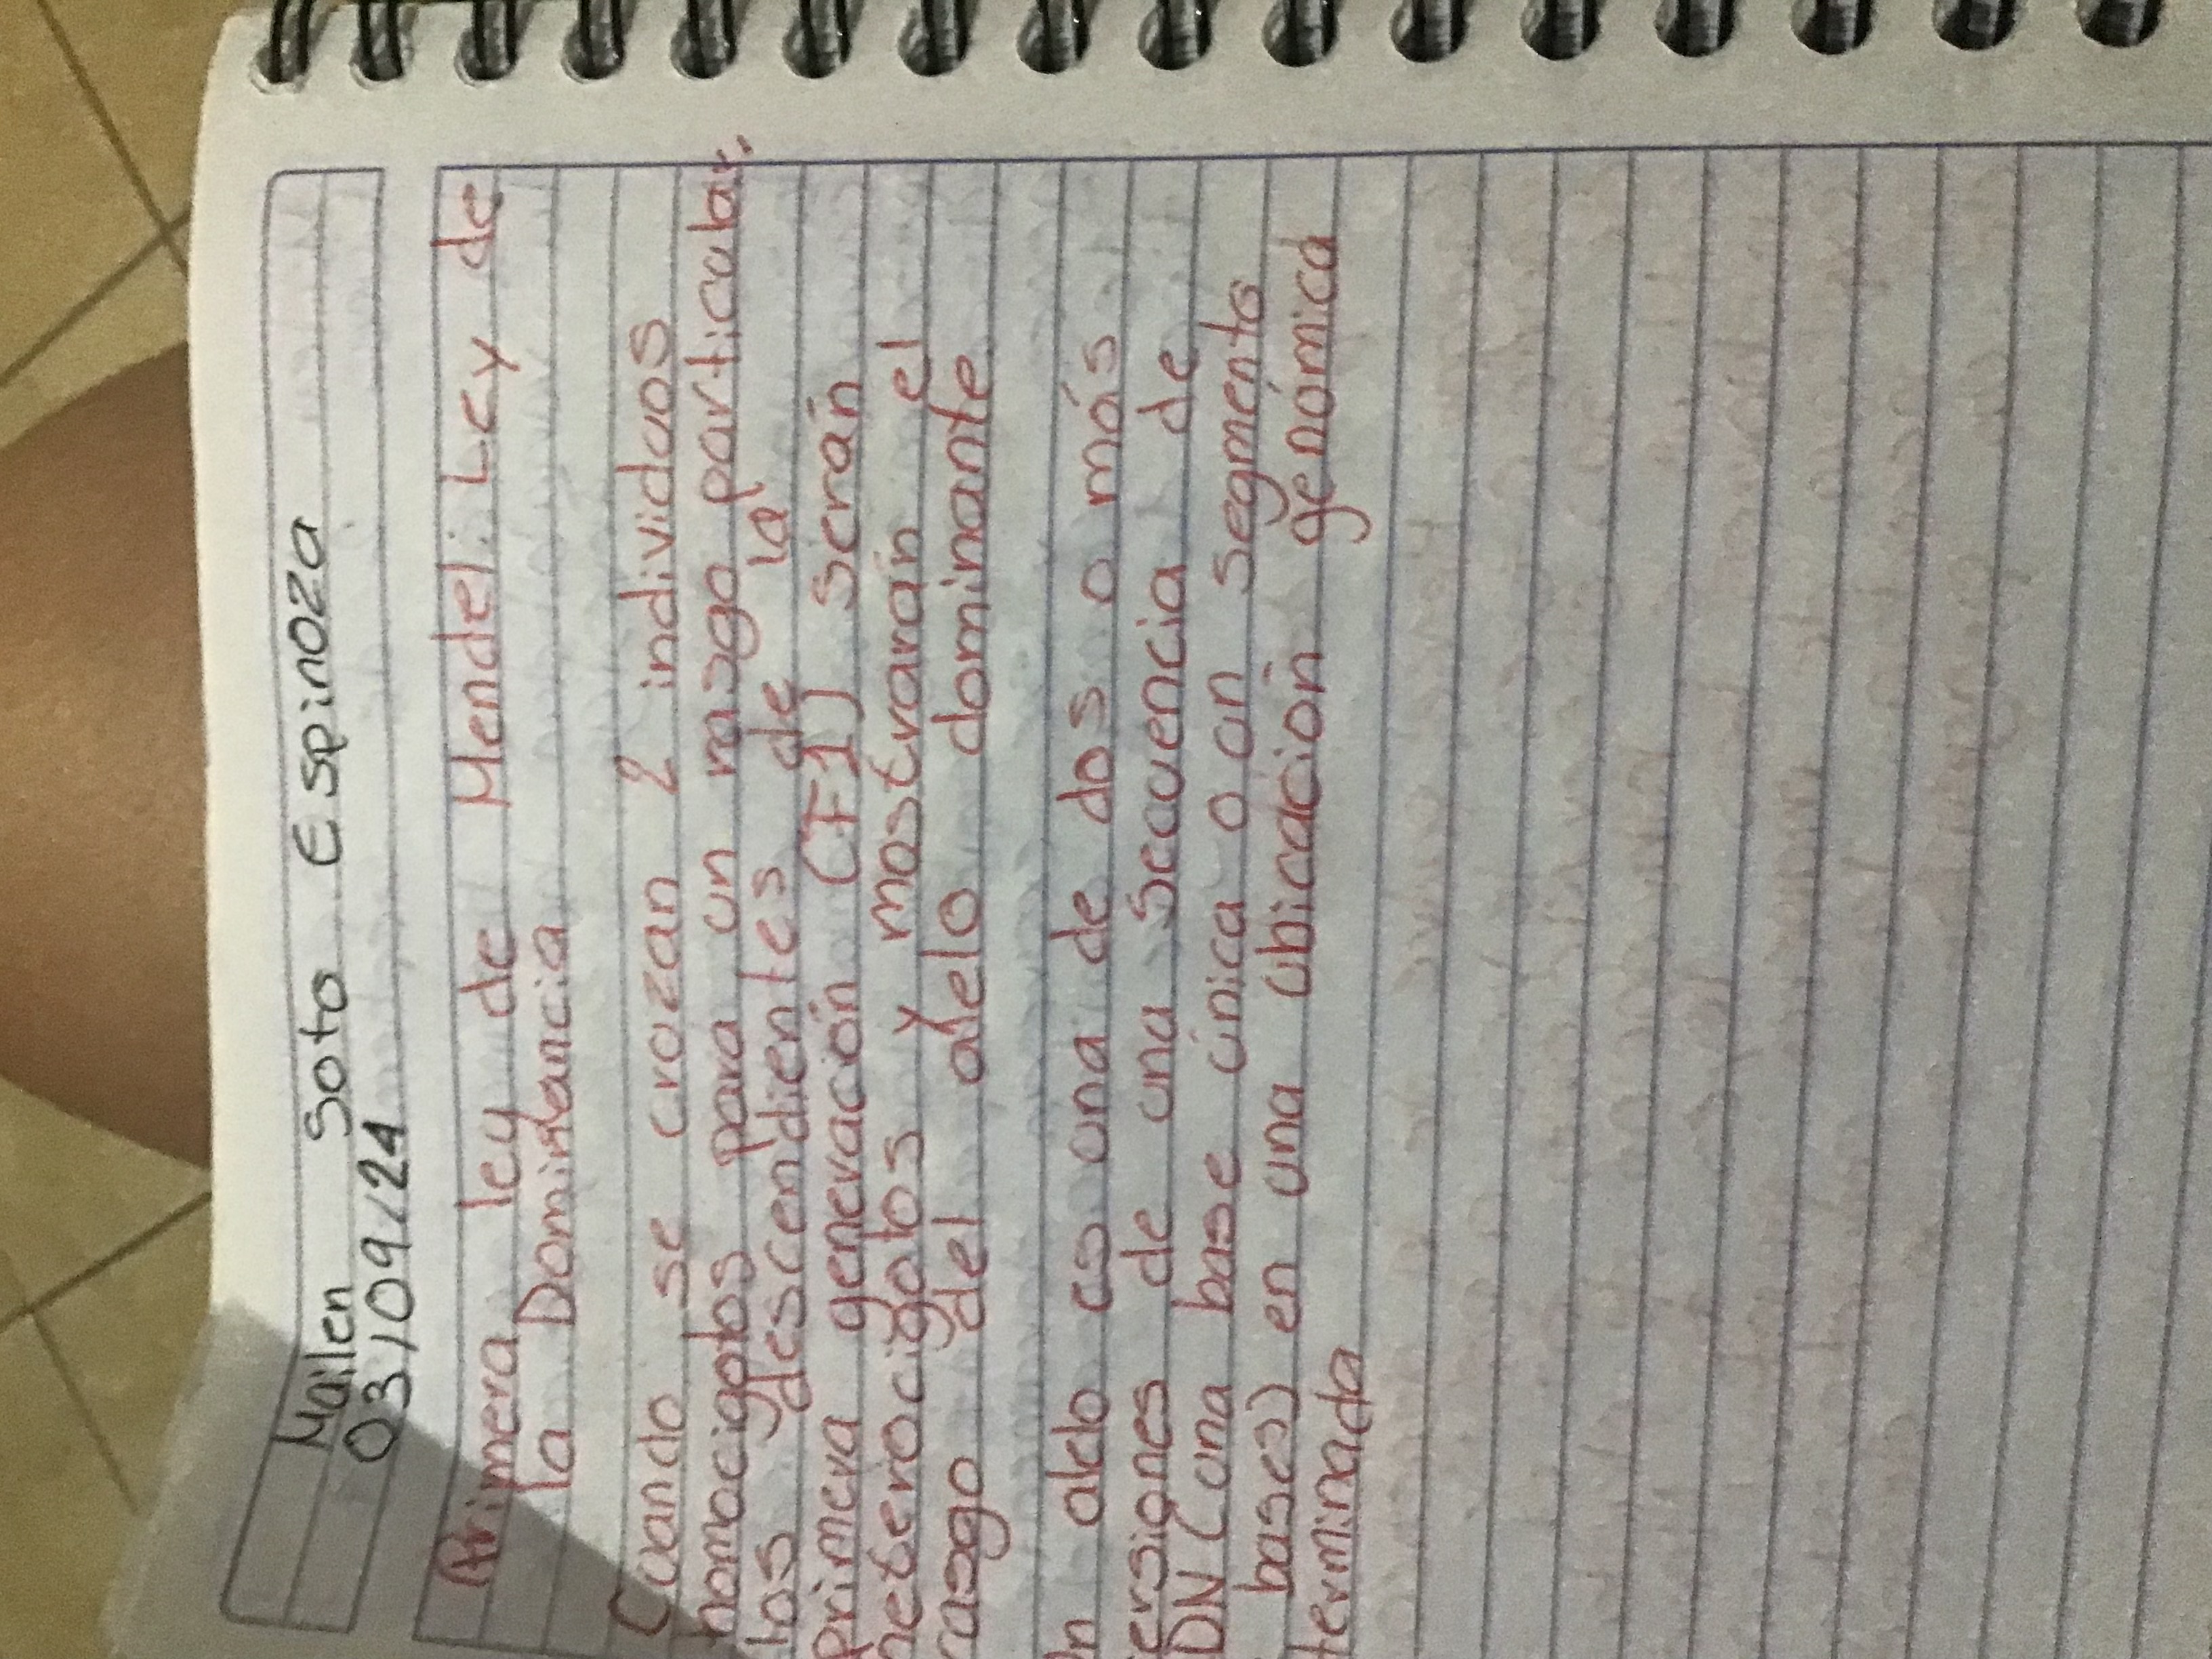 Mailen Soto Espinoza
03/09/24
Primera ley de Mendel: Ley de
la Dominancia
Cuando se crozan 2 individuos
homocigotos para un rasgo particular,
los descendientes de la
primera generación (F1) serán
heterocigotos y mostrarán el
rasgo del alelo dominante
n alelo es una de dos o más
ersiones de una secuencia de
DN (una base única o un segmento
bases) en una ubicación genómica
terminada